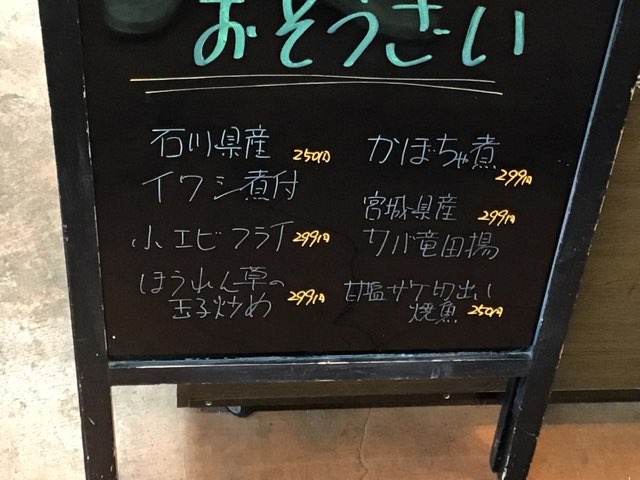 おそうざい
石川県産 250円
イワシ煮付
小エビフライ 299円
ほうれん草の
玉子炒め 299円
かぼちゃ煮
299円
宮城県産 299円
サバ竜田揚
甘塩サケ切出し
焼魚 250円